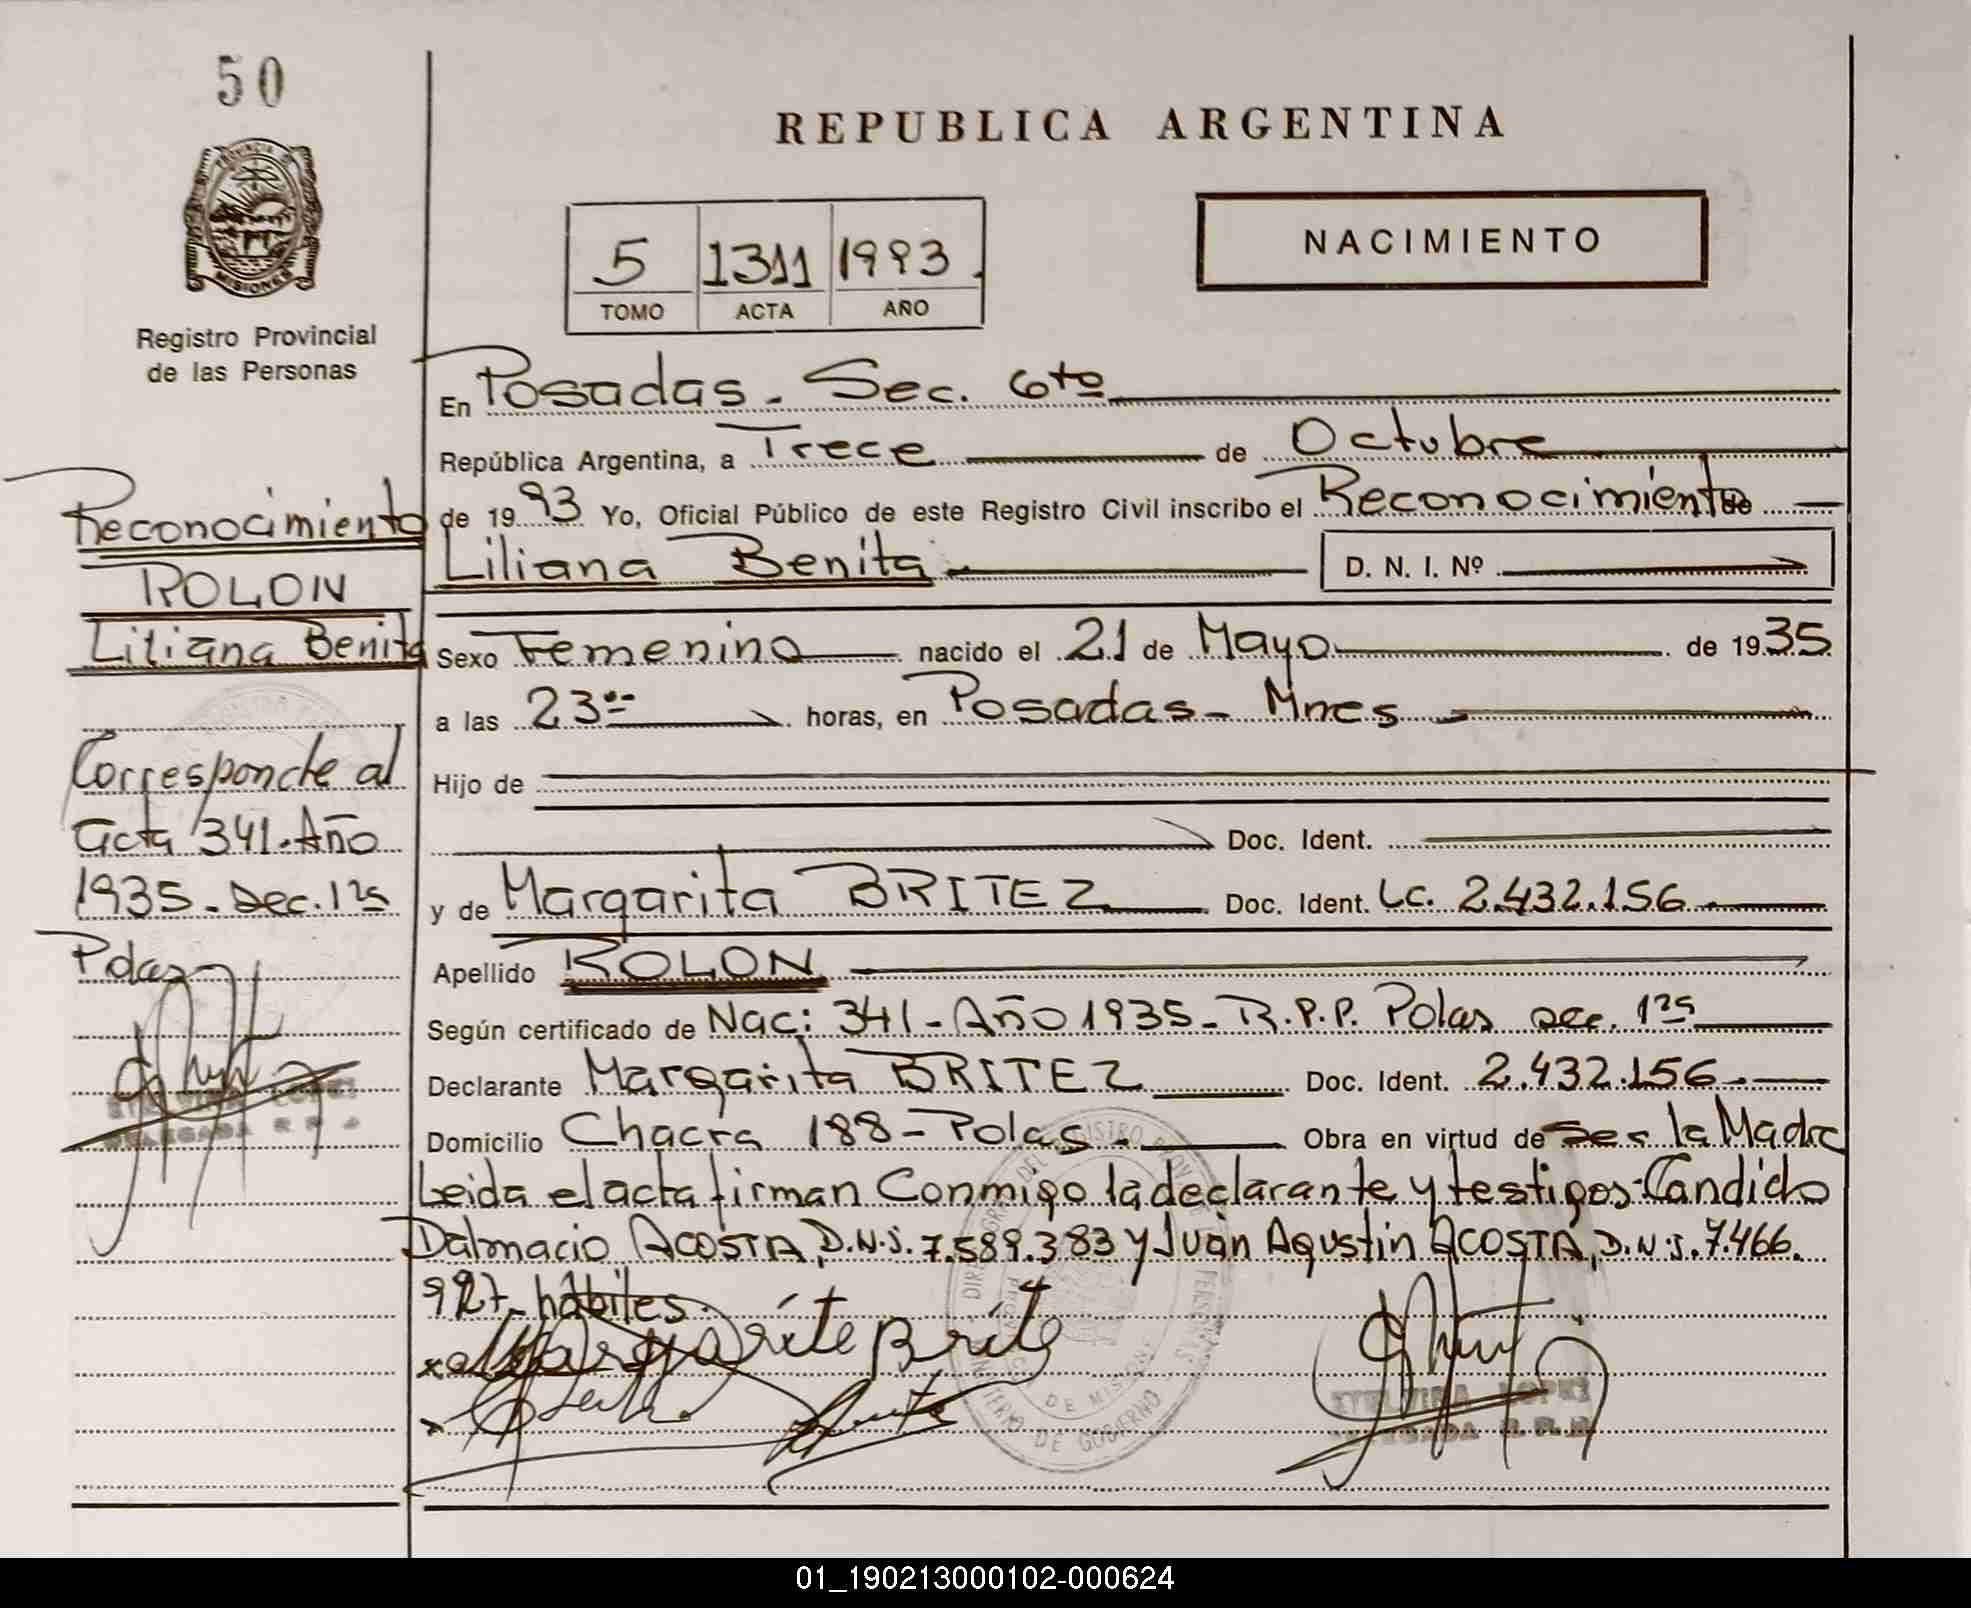 50
REPUBLICA ARGENTINA
PROVINCIA DE MISIONES
Registro Provincial
de las Personas
5 1311 1993
TOMO ACTA AÑO
NACIMIENTO
En Posadas - Sec. 6ta
República Argentina, a Trece de Octubre
de 1993 Yo, Oficial Público de este Registro Civil inscribo el Reconocimiento de
Liliana Benita D. N. I. Nº
Sexo Femenino nacido el 21 de Mayo de 1935
a las 23 horas, en Posadas - Mnes
Hijo de
Doc. Ident.
y de Margarita BRITEZ Doc. Ident. Lc. 2.432.156
Apellido ROLON
Según certificado de Nac: 341 - Año 1935 - R.P.P. Pdas sec. 1ra
Declarante Margarita BRITEZ Doc. Ident. 2.432.156
Domicilio Chacra 188 - Pdas. Obra en virtud de Ser la Madre
Leida el acta firman Conmigo la declarante y testigos: Candido
Dalmacio ACOSTA, D.N.I. 7.589.383 y Juan Agustin ACOSTA, D.N.I. 7.466.
927 hábiles.
Margarite Brite
Reconocimiento
ROLON
Liliana Benita
Corresponde al
acta 341 - Año
1935 - Sec. 1ra
Pdas
ETELVINA LOPEZ
DELEGADA R.P.P.
DE MISIONES
MINISTERIO DE GOBIERNO
ETELVINA LOPEZ
DELEGADA R.P.P.
01_190213000102-000624